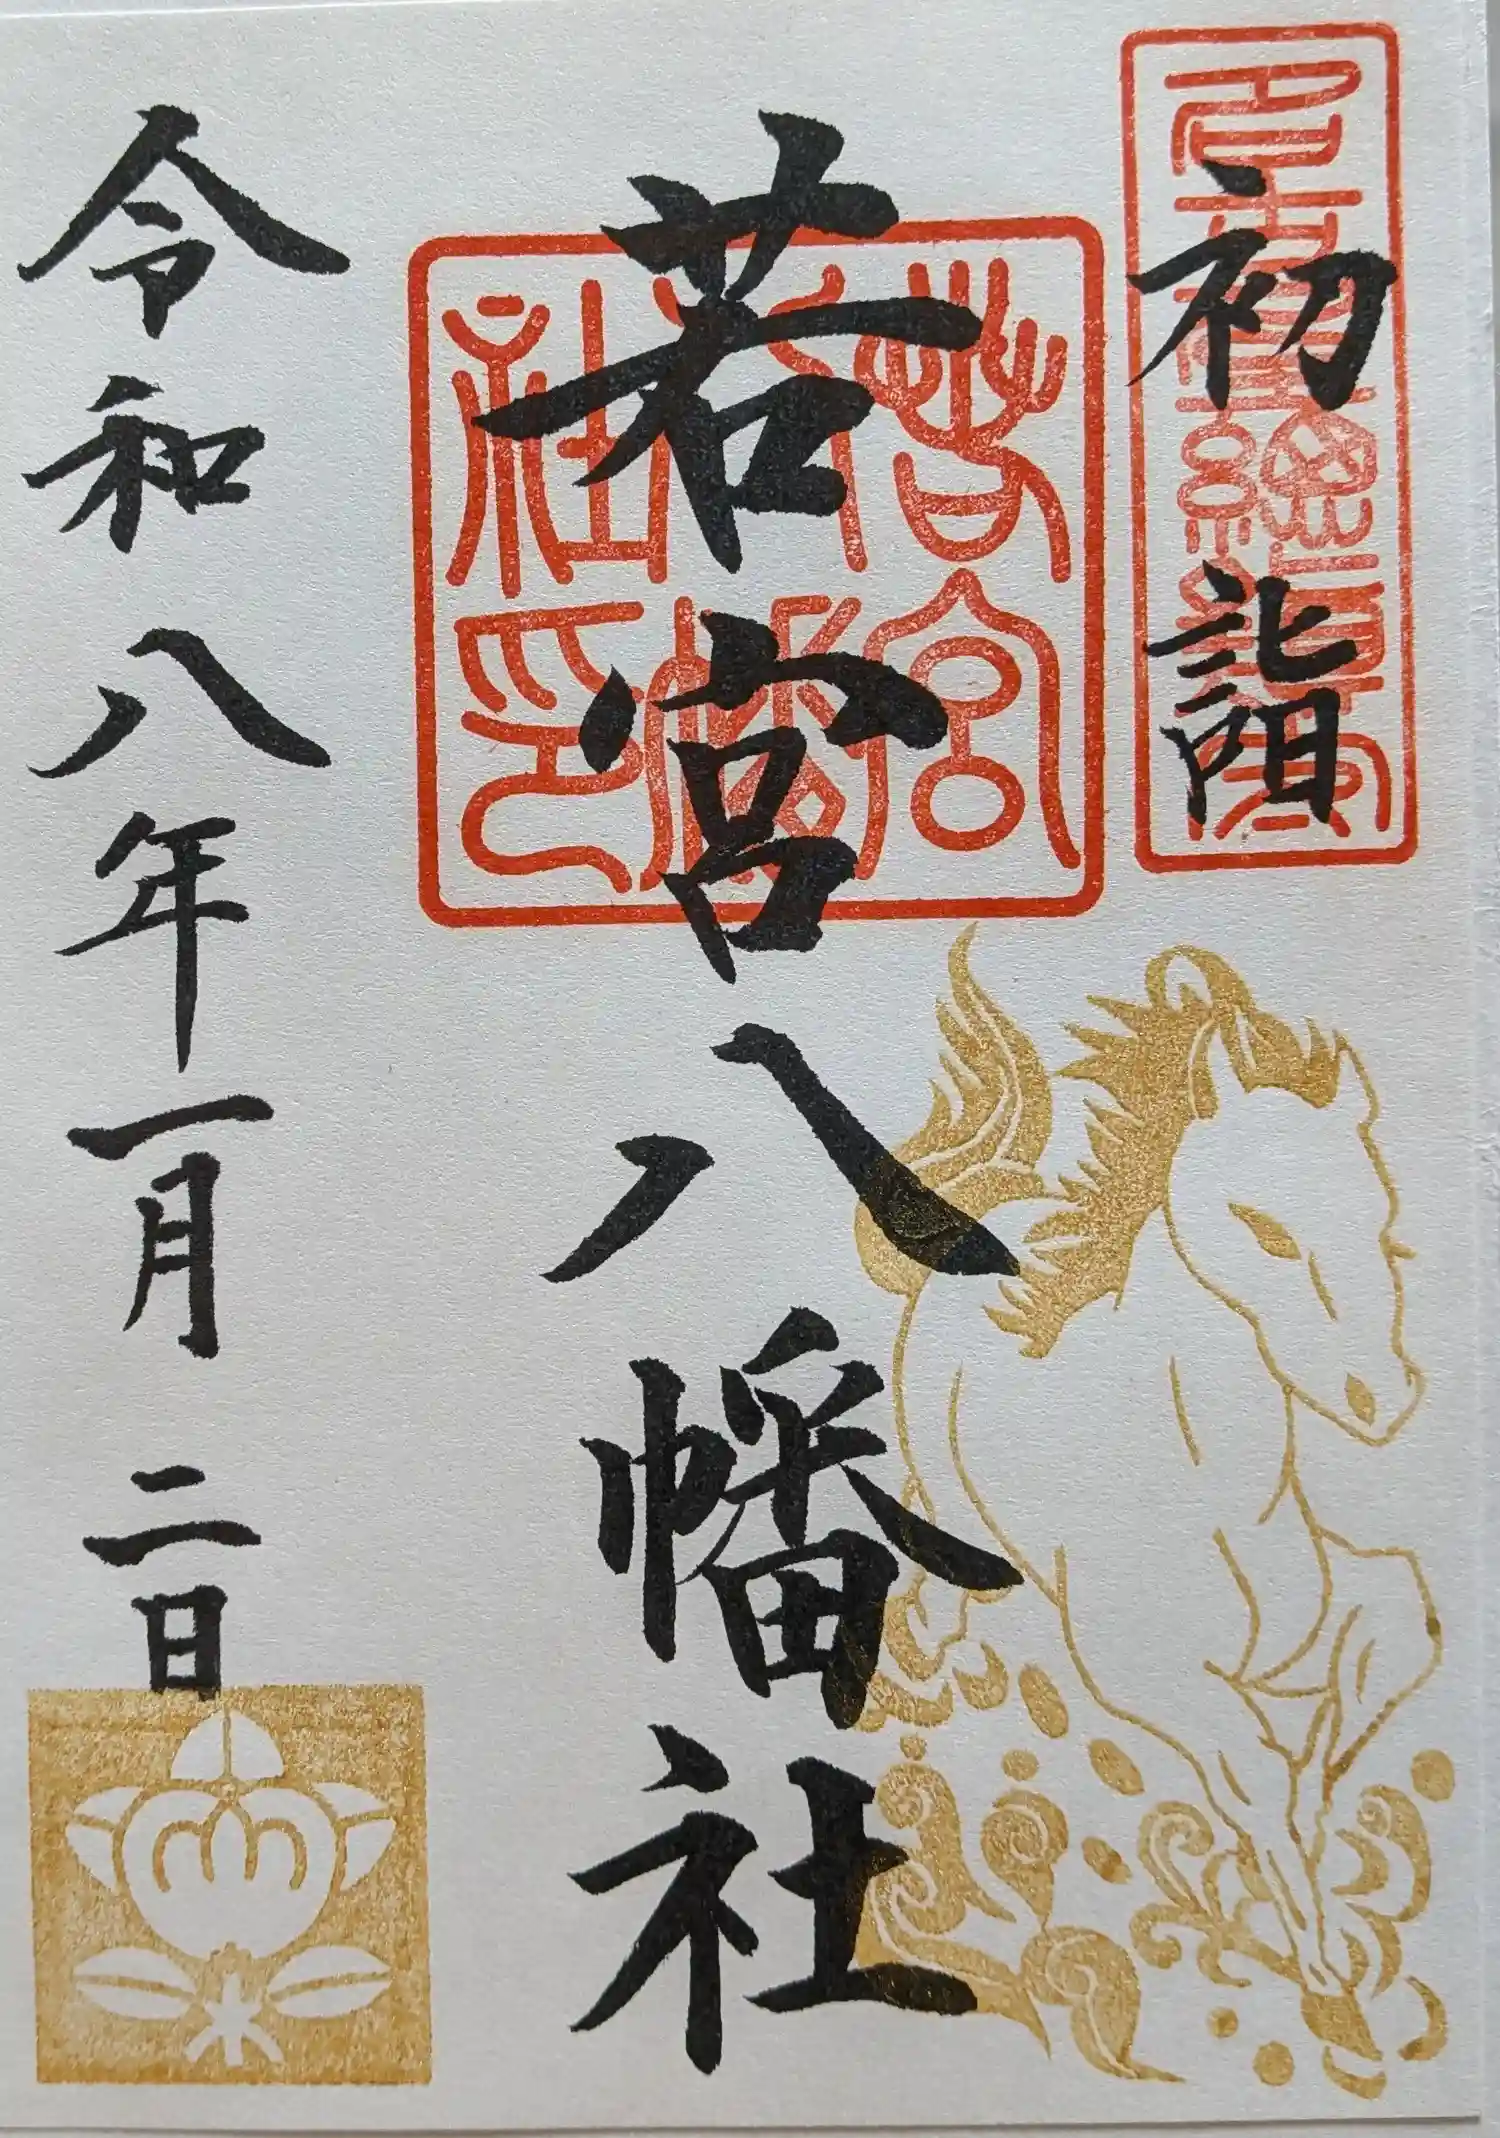 初詣
若宮八幡社
若宮八幡社印
令和八年一月二日